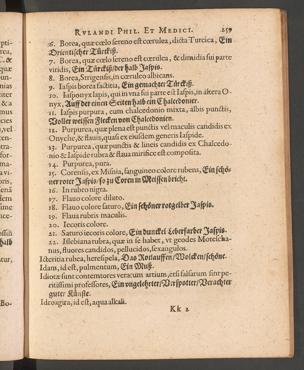 RVLANDI PHIL. ET MEDICI. 259
6. Borea, quæ cœlo sereno est cœrulea, dicta Turcica, Ein
Orientischer Türckiß.
7. Borea, quæ colore cœlo sereno est cœrulea, & dimidia sui parte
viridis, Ein Türckiß der halb Jaspis.
8. Borea, Strigensis, in cœruleo albicans.
9. Iaspis borea factitia, Ein gemachter Türckiß.
10. Iasponyx Iapis, qui in vna sui parte est Iaspis, in altera O-
nyx, Auff der einen Seiten halb ein Chalcedonier.
11. Iaspis purpura, cum chalcedonio mixta, albis punctis,
Voller weissen Flecken von Chalcedonien.
12. Purpurea, quæ plena est punctis vel maculis candidis ex
Onyche, & flauis, quasi ex eiusdem generis Iaspide.
13. Purpurea, quæ punctis & lineis candidis ex Chalcedo-
nio & Iaspide rubra & flaua mirifice est composita.
14. Purpurea, pura.
15. Corensis, ex Misnia, sanguineo colore rubens, Ein schö-
ner roter Jaspis/ so zu Coren in Meissen bricht.
16. In rubro nigra.
17. Flauo colore diluto.
18. Flauo colore saturo, Ein schöner rotgelber Jaspis.
19. Flaua rubris maculis.
20. Iecoris colore.
21. Saturo iecoris colore, Ein dunckel Leberfarber Jaspis.
22. Islebiana rubra, quæ in se habet, vt geodes
nus, fluores candidos, pellucidos, sexangulos.
Icteritia rubea, heresipela, Das Rotlauffen/
Idam, id est, pulmentum, Ein Muß.
Idiotæ sunt contemtores verarum artium, etsi falsarum sint pe-
ritissimi professores, Ein vngelehrter/ Verspotter/ Verachter
guter Künste.
Idroagira, id est, aqua alkali.
Kk 2